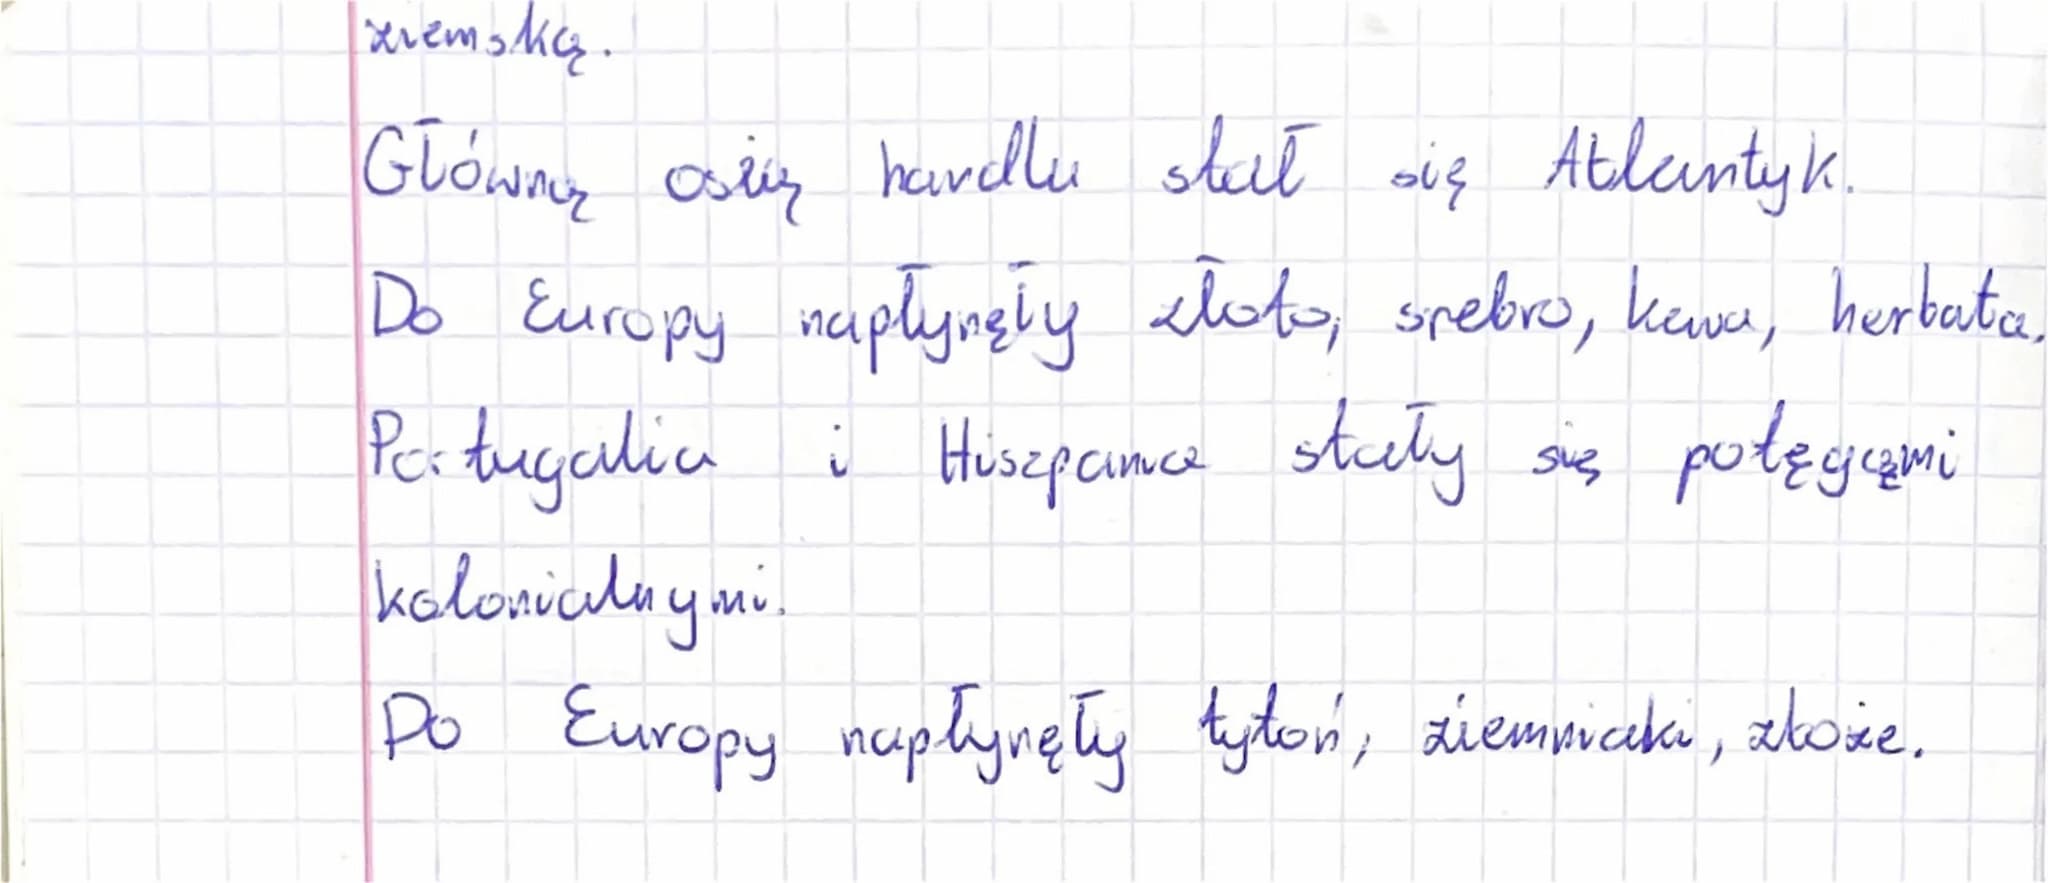 ziemską.
Główną osią handlu stał się Atlantyk.
Do Europy napłynęły złoto, srebro, kawa, herbata.
Portugalia i Hiszpania stały się potęgąmi
kolonialnymi.
Do Europy napłynęły tytoń, ziemniaki, zboże.